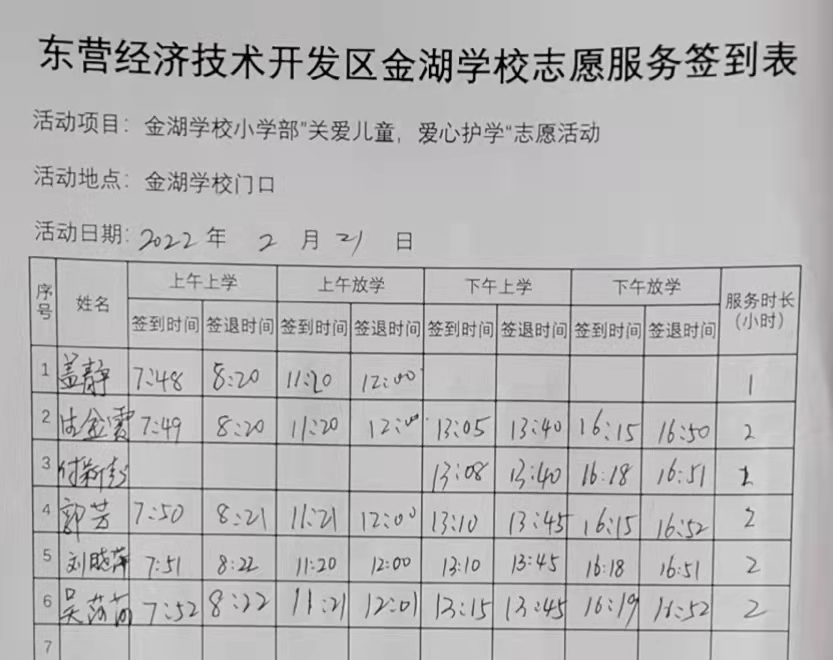 东营经济技术开发区金湖学校志愿服务签到表
活动项目：金湖学校小学部"关爱儿童，爱心护学"志愿活动
活动地点：金湖学校门口
活动日期：2022 年 2 月 21 日
序号 姓名 上午上学 上午放学 下午上学 下午放学 服务时长（小时）
签到时间 签退时间 签到时间 签退时间 签到时间 签退时间 签到时间 签退时间
1 盖静 7:48 8:20 11:20 12:00 1
2 金霞 7:49 8:20 11:20 12:00 13:05 13:40 16:15 16:50 2
3 付新 13:08 13:40 16:18 16:51
4 郭芳 7:50 8:21 11:21 12:00 13:10 13:45 16:15 16:52 2
5 刘晓萍 7:51 8:22 11:20 12:00 13:10 13:45 16:18 16:51 2
6 吴莎莎 7:52 8:22 11:21 12:01 13:15 13:45 16:19 16:52 2
7